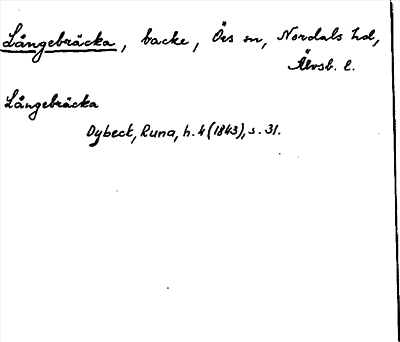 Långebräcka, backe, Örs sn, Nordals hd,
Älvsb. l.
Långebräcka
Dybeck, Runa, h. 4 (1843), s. 31.